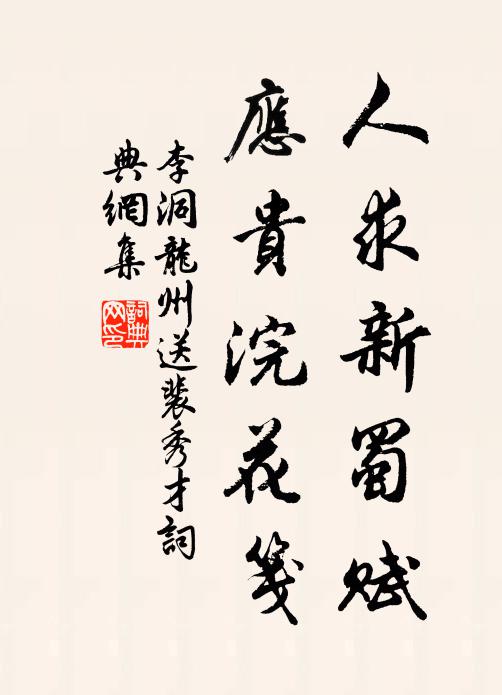 人求新蜀賦
應貴浣花箋
李洞龍州送裴秀才詞
典網集
詞典
网印